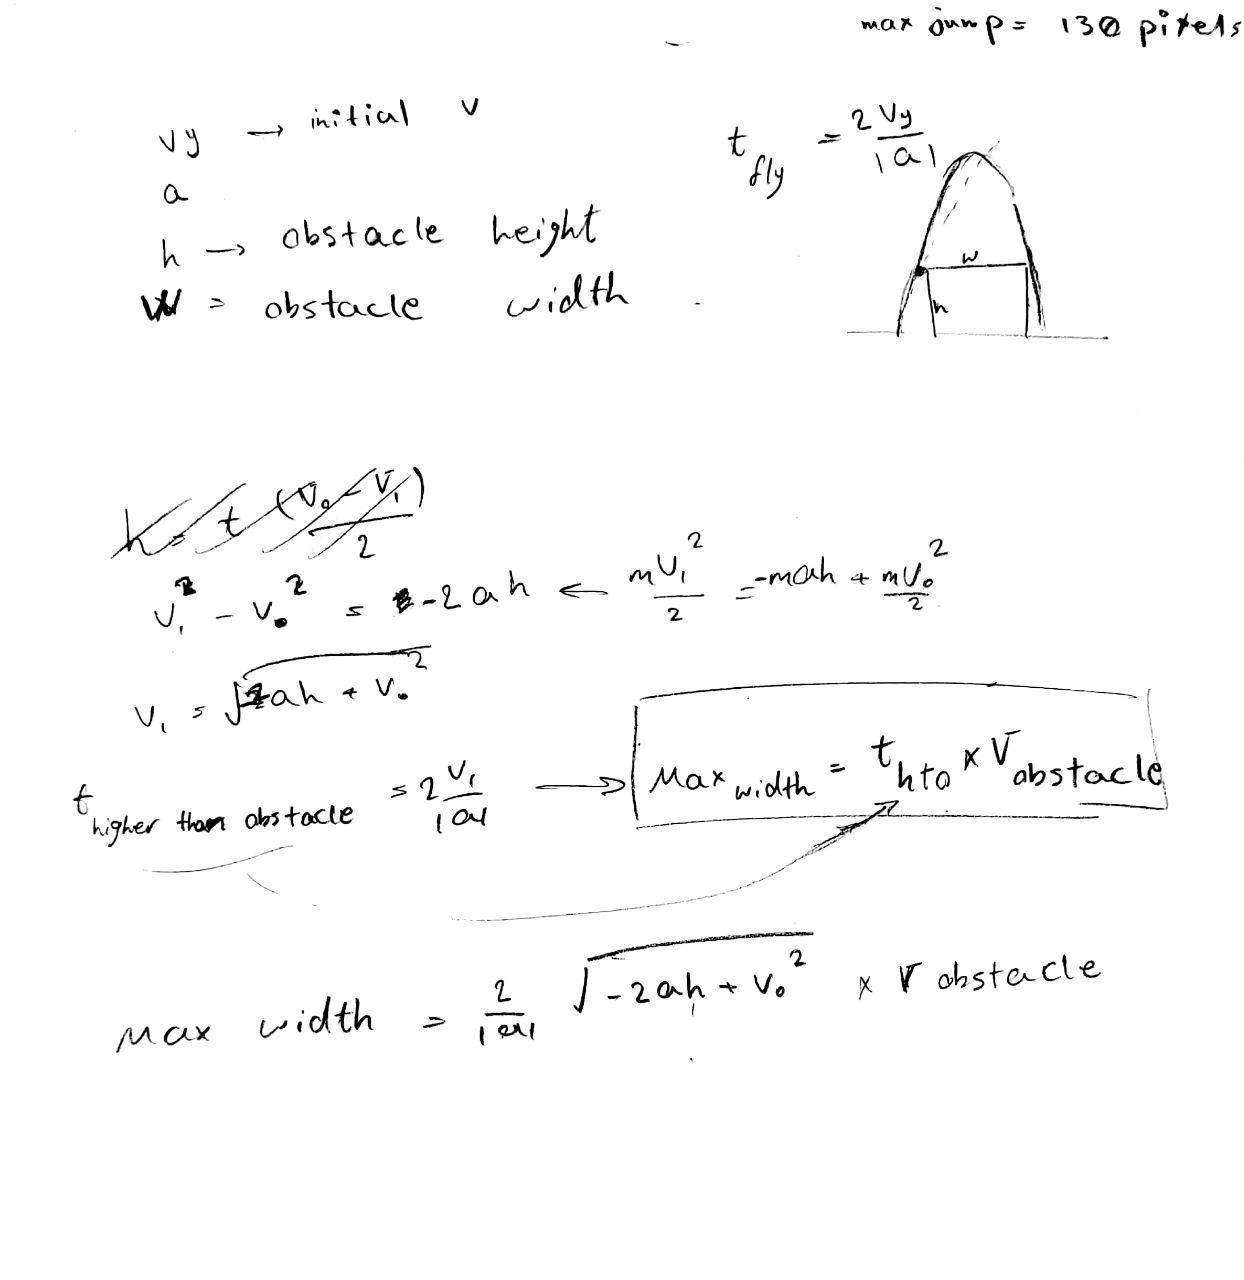 max jump = 130 pixels
vy → initial v
t fly = 2 Vy / |a|
a
h → obstacle height
W = obstacle width
w
h
h = t (V₀ - V₁) / 2
V₁² - V₀² = -2ah ← mV₁² / 2 = -mah + mV₀² / 2
V₁ = √ah + V₀²
t higher than obstacle = 2 V₁ / |a| → Max width = t hto × V obstacle
Max width = 2 / |a| √-2ah + V₀² × V obstacle